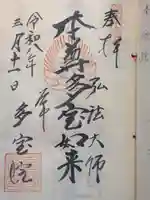 奉拝
弘法大師
本尊多宝如来
令和二年
三月十一日
多宝院